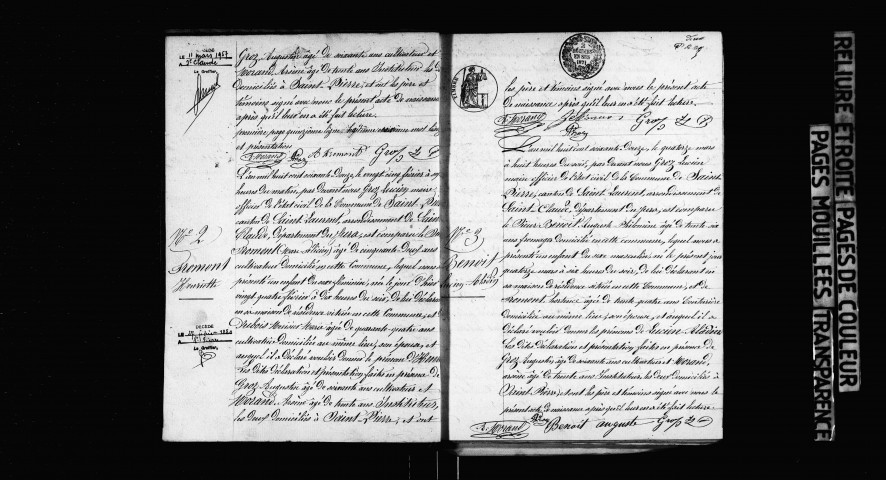 DÉCÉDÉ
LE 11 mars 1957
à St Claude
Le Greffier,
Groz, Augustin âgé de soixante ans cultivateur et
Morand, Arsène âgé de trente ans Instituteur les deux
domiciliés à Saint-Pierre; et ont les père et
témoins signé avec nous le présent acte de naissance
après qu'il leur en a été fait lecture.
première page quinzième ligne
et présentation
A. Morand A Fromont Groz
L'an mil huit cent soixante Douze, le vingt cinq février à
heures du matin, par devant nous Groz Lucien, maire
officier de l'état civil de la Commune de Saint-Pierre
canton de Saint-Laurent, arrondissement de Saint
Claude, département du Jura, est comparu le
Fromont âgé de cinquante Deux ans
cultivateur domicilié en cette Commune, lequel nous a
présenté un enfant du sexe féminin, née le jour d'hier
vingt quatre février à dix heures du soir, de lui Déclarant
en sa maison de résidence sitiée en cette Commune, et
âgé de quarante quatre ans
cultivatrice domiciliée au même lieu, son épouse, et
auquel il a Déclaré vouloir donner le prénom de
Les dites déclaration et présentation faites en présence de
Groz Augustin âgé de soixante ans cultivateur et
Morand, Arsène âgé de trente ans Instituteur,
les deux domiciliés à Saint-Pierre; et ont
No 2
Fromont
Henriette
DÉCÉDÉ
LE
A
Le Greffier,
les père et témoins signé avec nous le présent acte
de naissance après qu'il leur en a été fait lecture.
A. Morand Groz
L'an mil huit cent soixante Douze, le quatorze mars
à huit heures du soir, par devant nous Groz Lucien
maire officier de l'état civil de la Commune de Saint-
Pierre, canton de Saint-Laurent, arrondissement de
Saint-Claude, département du Jura, est comparu
le Sieur Benoit Auguste Philomène âgé de trente six
ans fromager domicilié en cette commune, lequel nous a
présenté un enfant du sexe masculin, né le présent jour
quatorze mars à six heures du soir, de lui déclarant en
sa maison de résidence sitiée en cette Commune, et de
Fromont âgée de trente quatre ans
domiciliée au même lieu, son épouse, et auquel il a
déclaré vouloir donner les prénoms de Lucien Albin
Les dites déclaration et présentation faites en présence de
Groz Augustin âgé de soixante ans cultivateur et Morand,
arsène âgé de trente ans Instituteur, les deux domiciliés à
Saint-Pierre; et ont le père et témoins signé avec nous le
présent acte de naissance après qu'il leur en a été fait lecture.
A. Morand Benoit auguste Groz
No 3
Benoit
Lucien Albin
RELIURE ETROITE PAGES DE COULEUR
PAGES MOUILLEES TRANSPARENCE